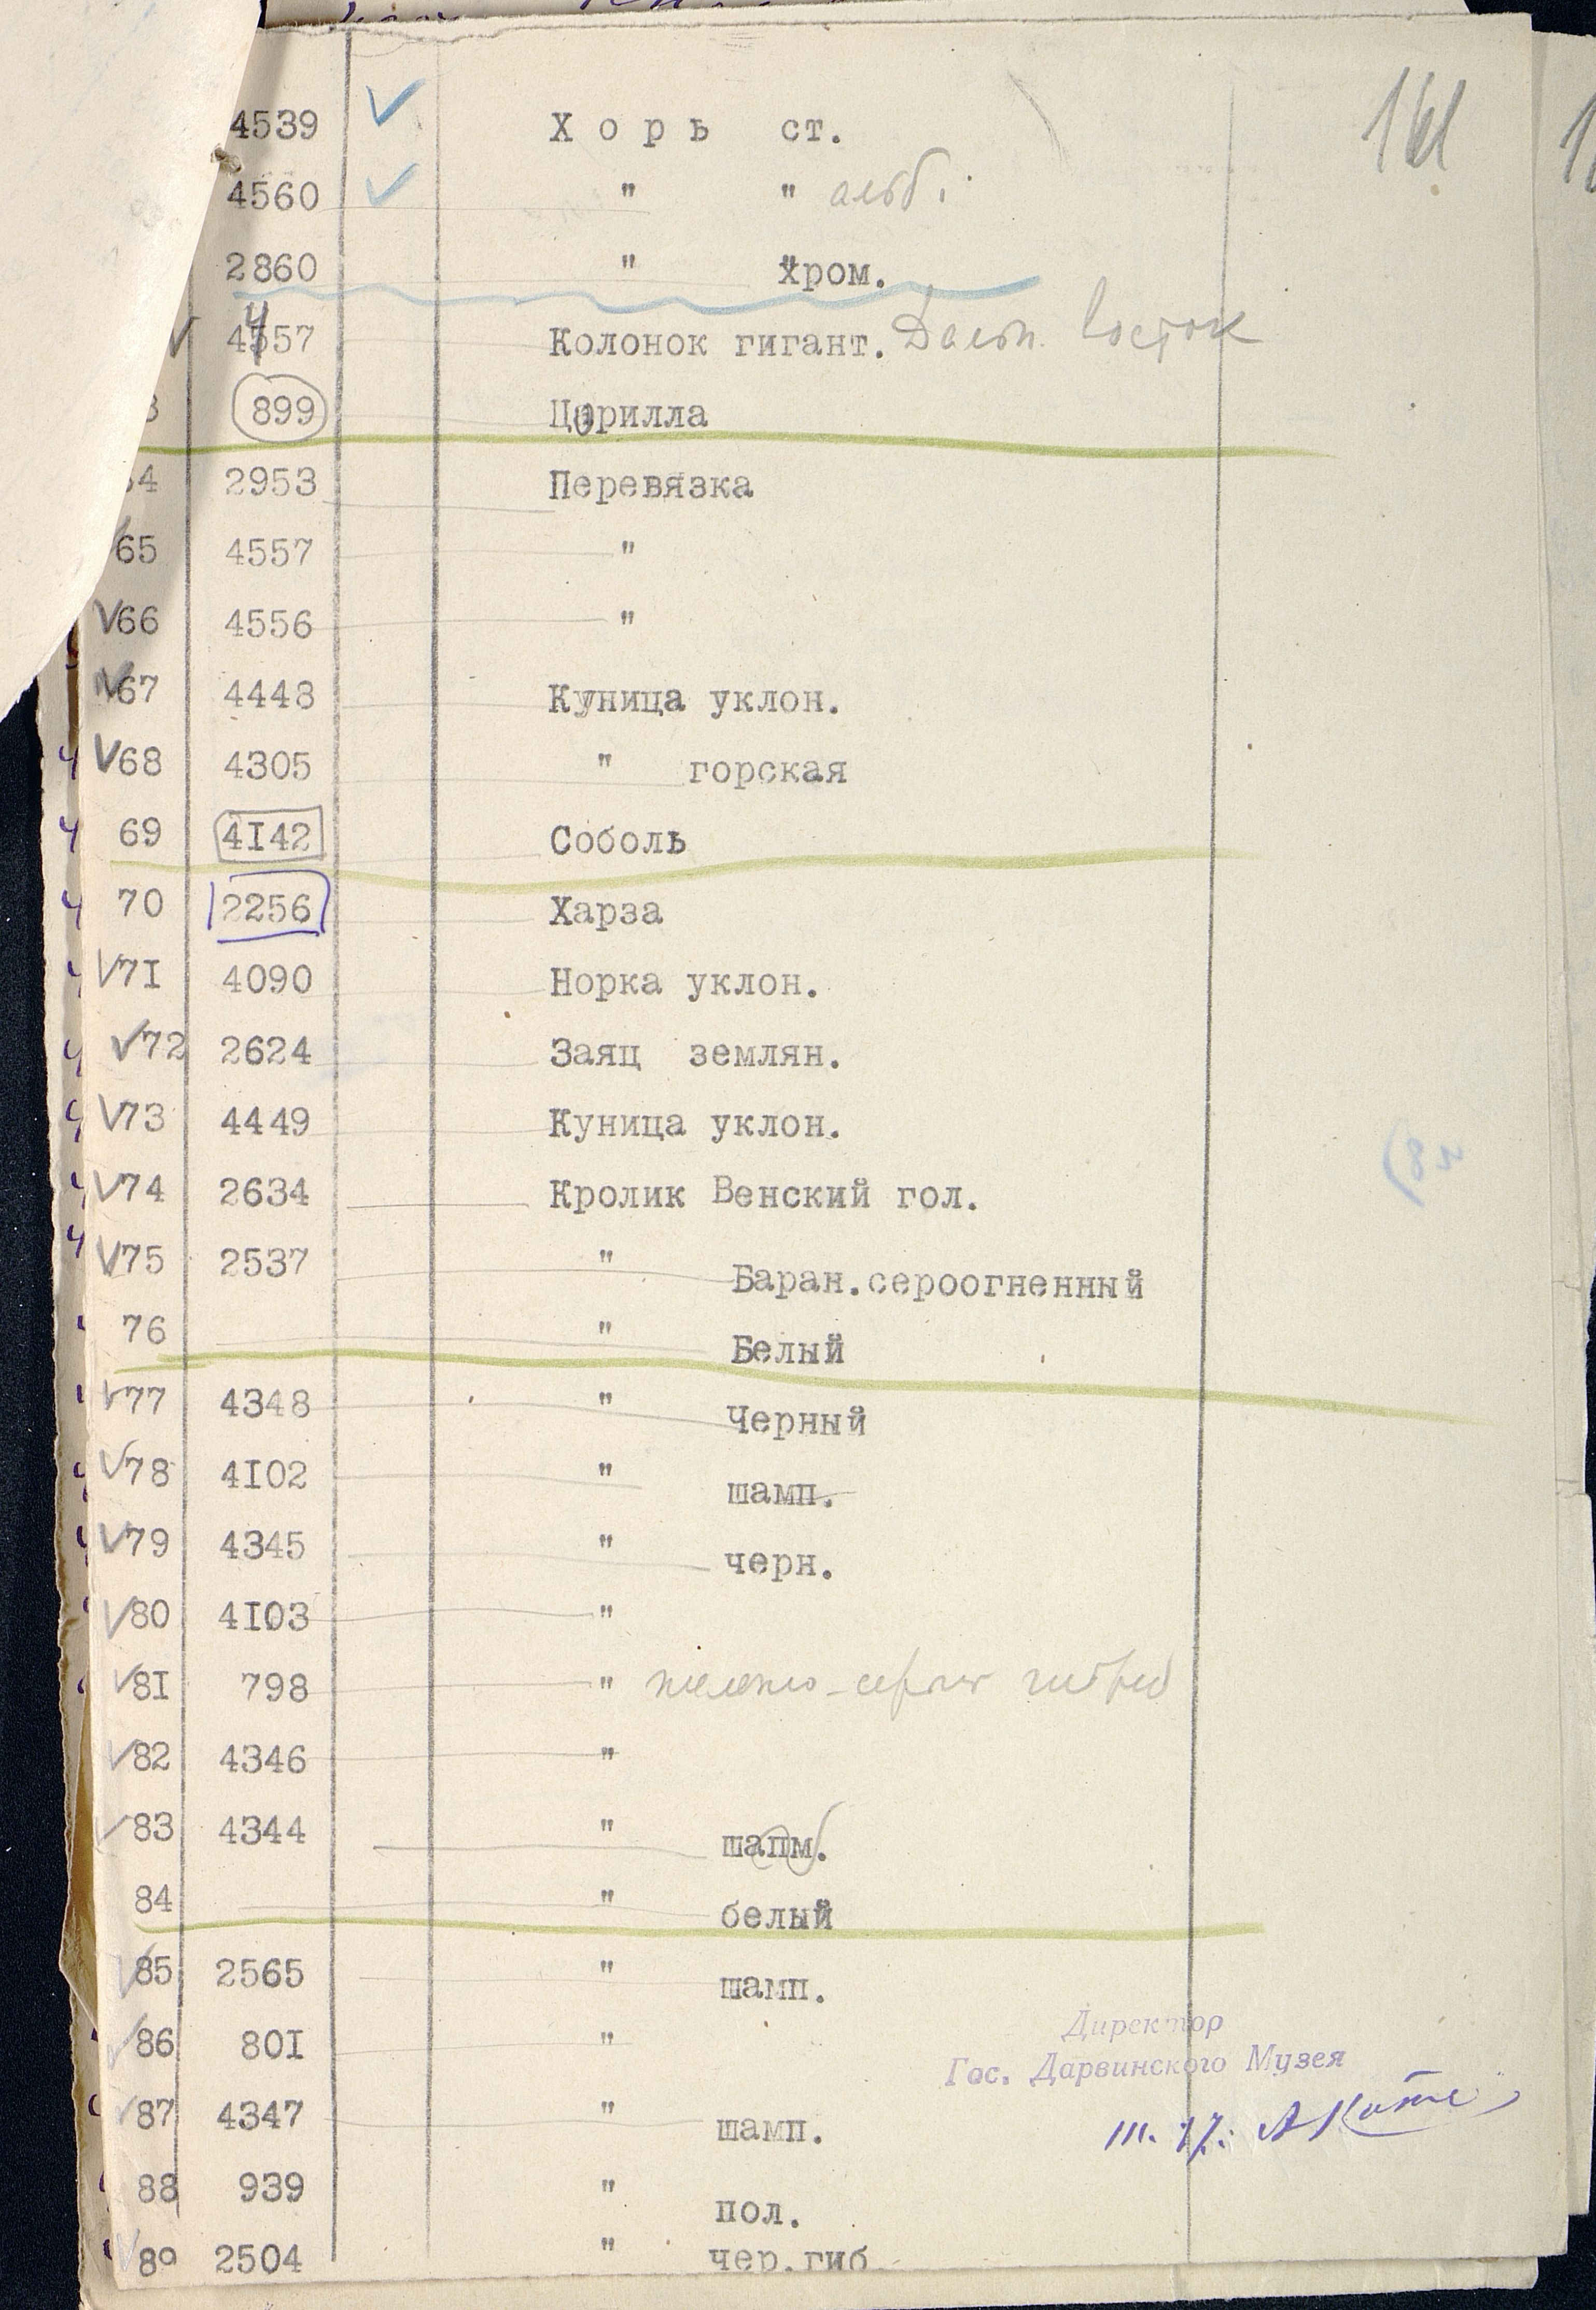 161
4539 Хорь ст.
4560 " " альб.
2860 " хром.
4457 Колонок гигант. Дальн. Восток
899 Цорилла
2953 Перевязка
65 4557 "
66 4556 "
67 4448 Куница уклон.
68 4305 " горская
69 4I42 Соболь
70 2256 Харза
7I 4090 Норка уклон.
72 2624 Заяц землян.
73 4449 Куница уклон.
74 2634 Кролик Венский гол.
75 2537 " Баран.сероогненный
76 " Белый
77 4348 " Черный
78 4I02 " шамп.
79 4345 " черн.
80 4I03 "
8I 798 "
82 4346 "
83 4344 " шапм.
84 " белый
85 2565 " шамп.
86 80I "
87 4347 " шамп.
88 939 " пол.
89 2504 " чер.гиб
Директор
Гос. Дарвинского Музея
А Котс